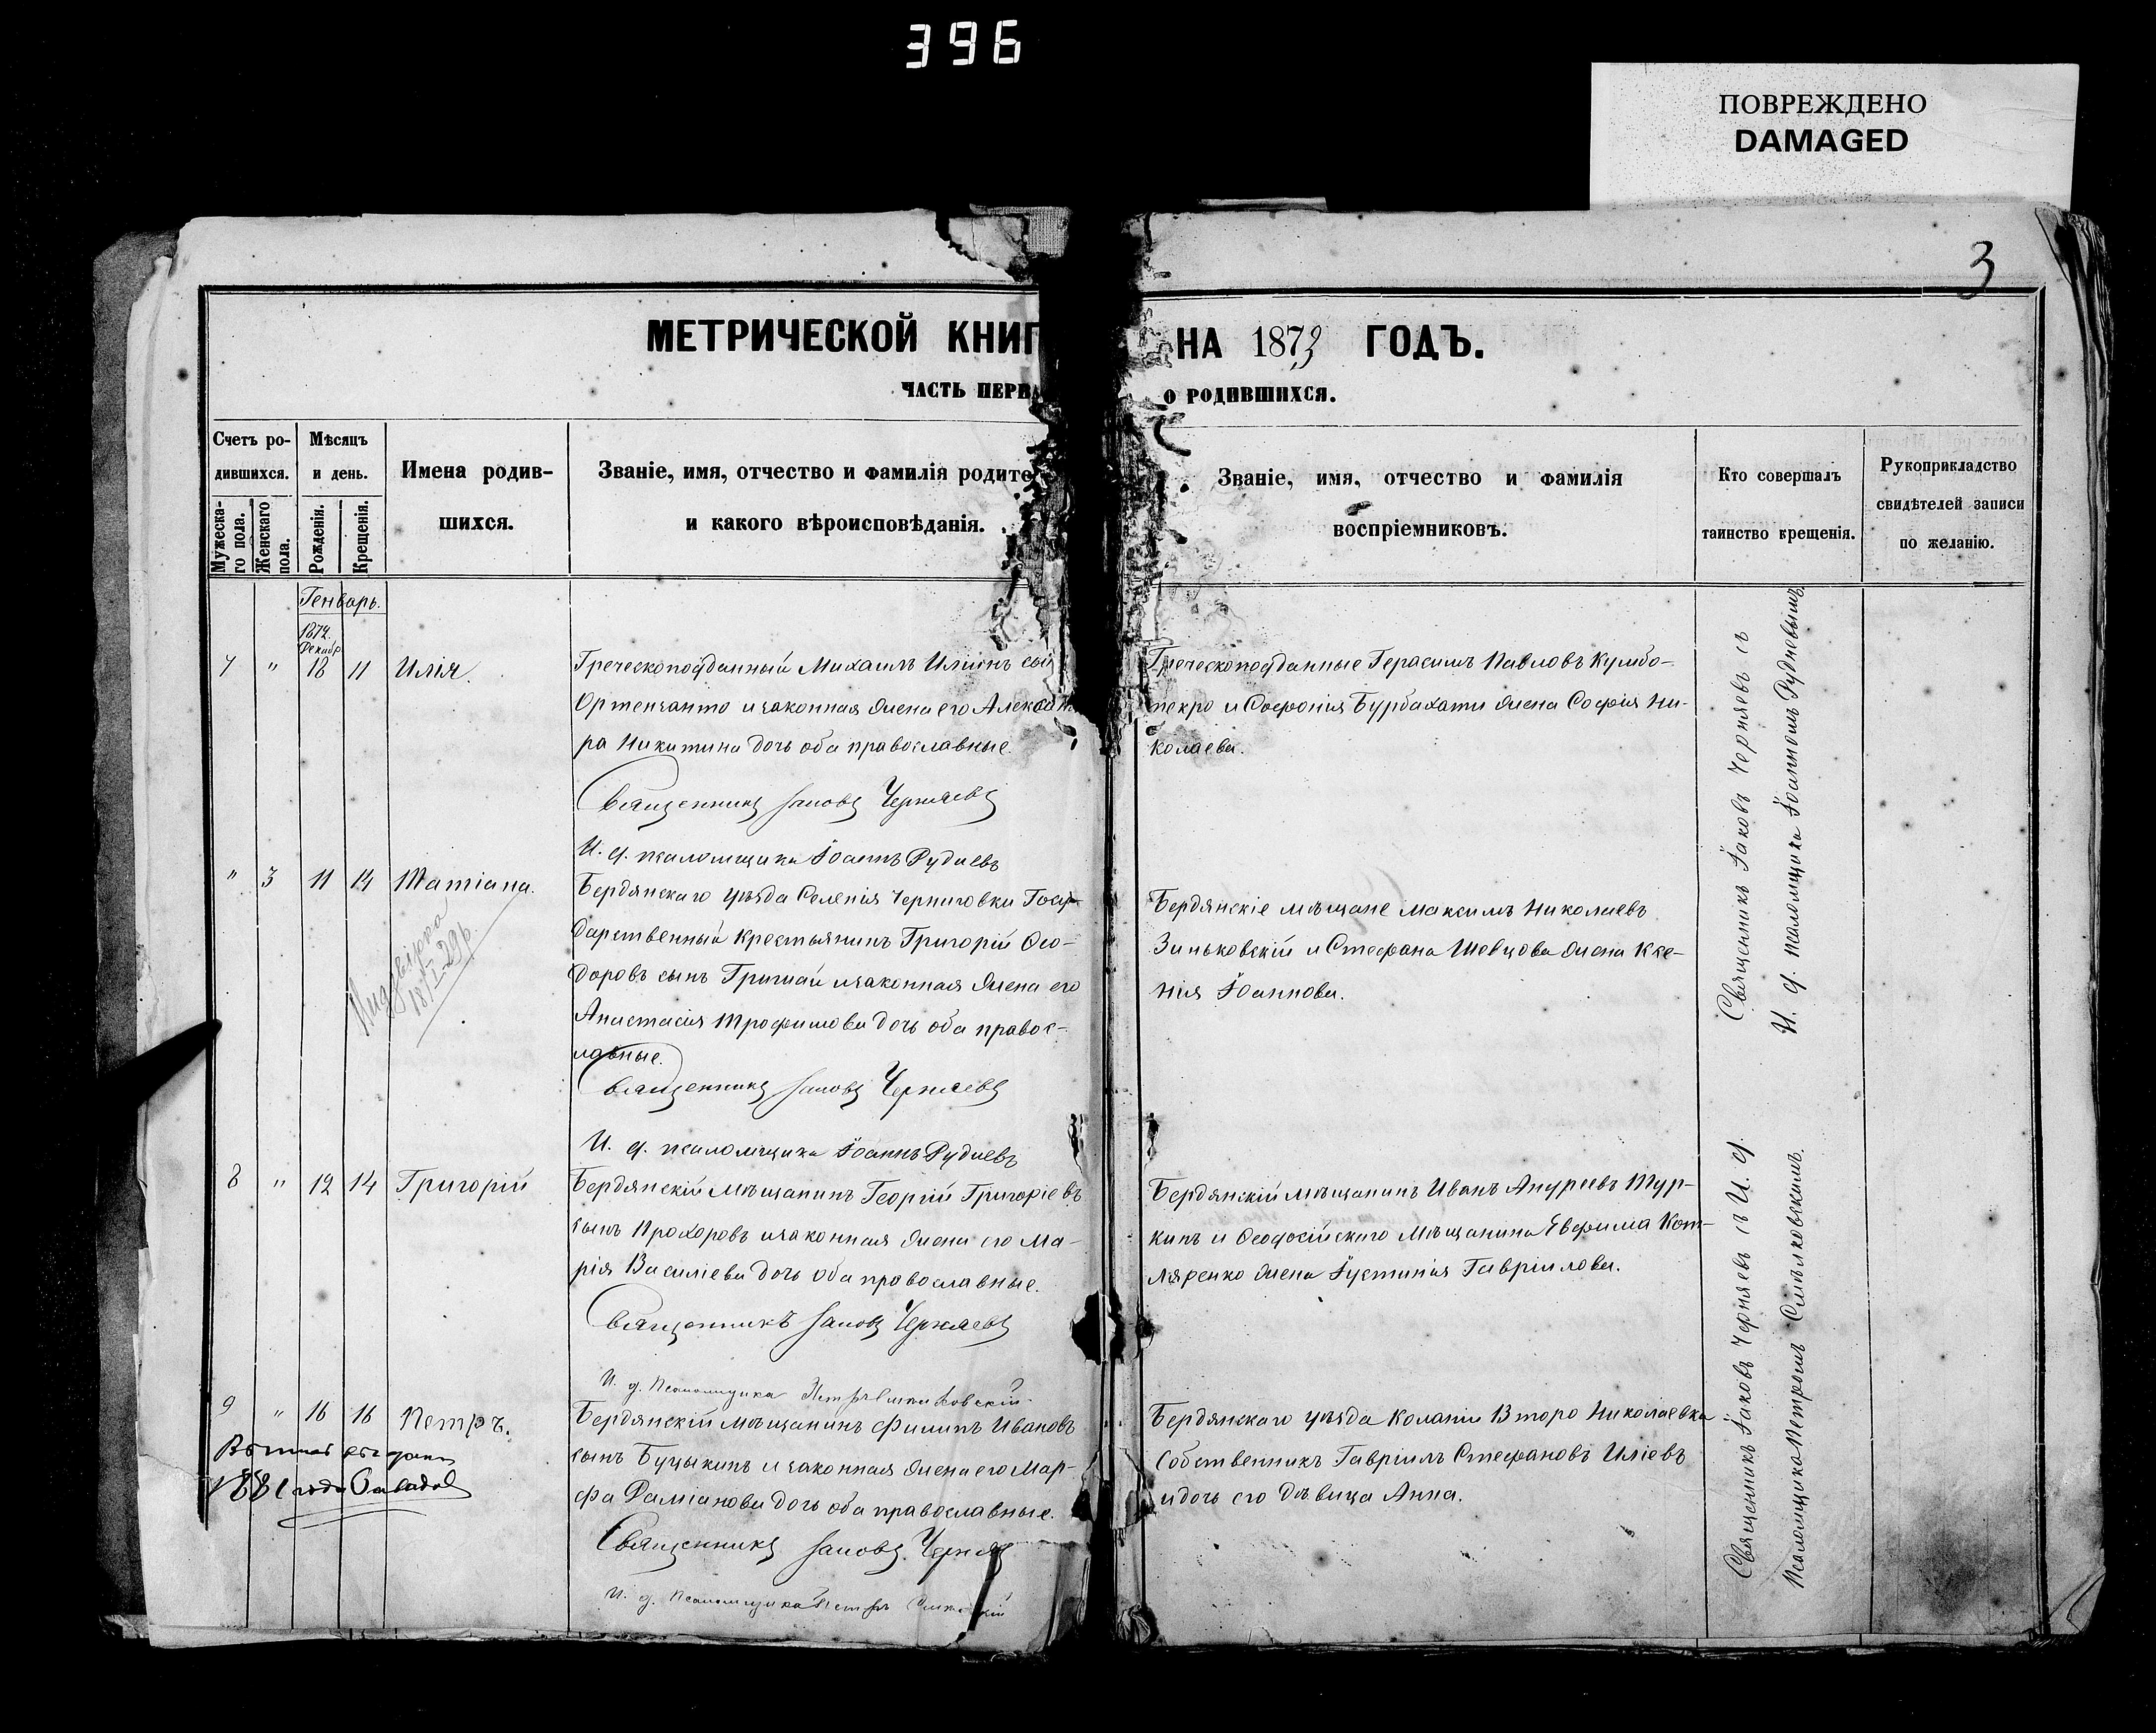 396
ПОВРЕЖДЕНО
DAMAGED
3
МЕТРИЧЕСКОЙ КНИГ
НА 1873 ГОДЪ.
ЧАСТЬ ПЕРВА
О РОДИВШИХСЯ.
Счетъ ро-
дившихся.
Мужеска-
го пола.
Женскаго
пола.
Мѣсяцъ
и день.
Рожденія.
Крещенія.
Имена родив-
шихся.
Званіе, имя, отчество и фамилія родите
и какого вѣроисповѣданія.
Званіе, имя, отчество и фамилія
воспріемниковъ.
Кто совершалъ
таинство крещенія.
Рукоприкладство
свидѣтелей записи
по желанію.
Генварь.
1872.
Декабр
7 " 18 11 Илія.
Греческоподданный Михаилъ Иліинъ сын
Ортентанто и законная жена его Алексан
ра Никитина дочь оба православные.
Священникъ Іаковъ Черняевъ
И. д. псаломщика Іоаннъ Рудневъ
Греческоподданные Герасимъ Павловъ Кумбо-
текро и Софронія Бурбахати жена Софія Ни-
колаева.
Священникъ Іаковъ Черняевъ съ
И. д. псаломщика Іоанномъ Рудневымъ
" 3 11 14 Татіана.
18/I-29р.
Бердянскаго уѣзда Селенія Черниговки Госу-
дарственный крестьянинъ Григорій Ѳео-
доровъ сынъ Гришай и законная жена его
Анастасія Трофимова дочь оба правос-
лавные.
Священникъ Іаковъ Черняевъ
И. д. псаломщика Іоаннъ Рудневъ
Бердянскіе мѣщане Максимъ Николаевъ
Зиньковскій и Стефана Шевцова жена Ксе-
нія Іоаннова.
8 " 12 14 Григорій
Бердянскій мѣщанинъ Георгій Григоріевъ
сынъ Прохоровъ и законная жена его Ма-
рія Василіева дочь оба православные.
Священникъ Іаковъ Черняевъ
И. д. Псаломщика Петръ Смиковскій
Бердянскій мѣщанинъ Иванъ Андреевъ Тур-
кинъ и Ѳеодосійскаго мѣщанина Евфима Кот-
ляренко жена Іустинія Гавріилова.
Священникъ Іаковъ Черняевъ съ И. д.
Псаломщика Петромъ
9 " 16 16 Петръ.
1881 года
Бердянскій мѣщанинъ Филипъ Ивановъ
сынъ Буцыкинъ и законная жена его Мар-
фа Даміанова дочь оба православные.
Священникъ Іаковъ Черняев
И. д. Псаломщика Петръ
Бердянскаго уѣзда Колоніи Второ Николаевка
Собственникъ Гавріилъ Стефановъ Иліевъ
и дочь его дѣвица Анна.